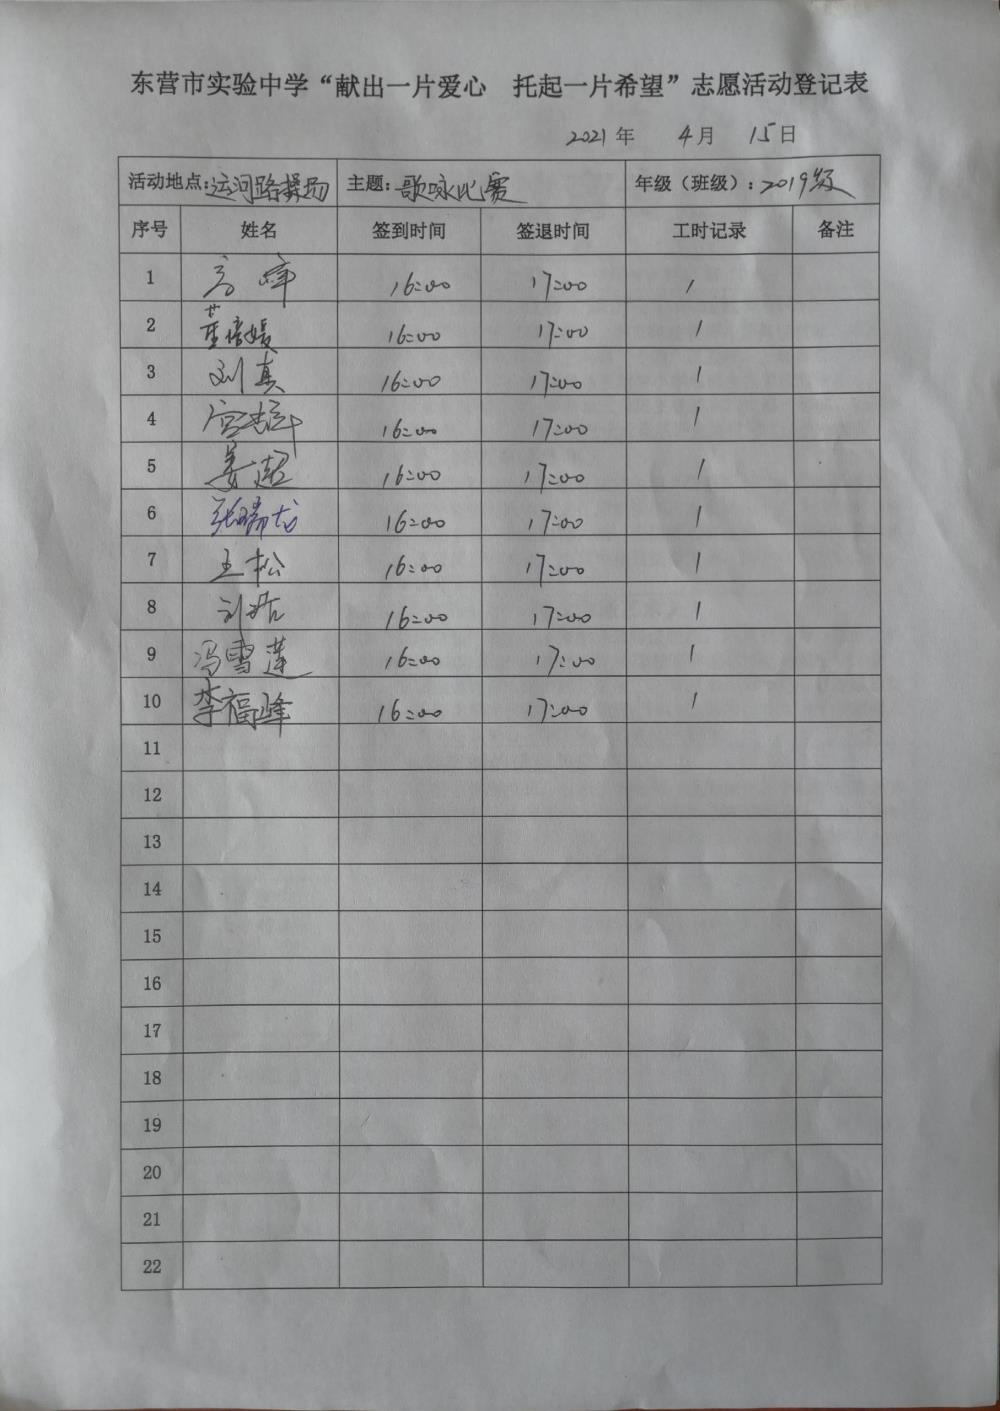 东营市实验中学“献出一片爱心 托起一片希望”志愿活动登记表
2021年 4月 15日
活动地点：运河路操场 主题：歌咏比赛 年级（班级）：2019级
序号 姓名 签到时间 签退时间 工时记录 备注
1 高峰 16:00 17:00 1
2 董倩媛 16:00 17:00 1
3 刘真 16:00 17:00 1
4 16:00 17:00 1
5 姜超 16:00 17:00 1
6 张瑞龙 16:00 17:00 1
7 王松 16:00 17:00 1
8 16:00 17:00 1
9 冯雪莲 16:00 17:00 1
10 李福峰 16:00 17:00 1
11
12
13
14
15
16
17
18
19
20
21
22